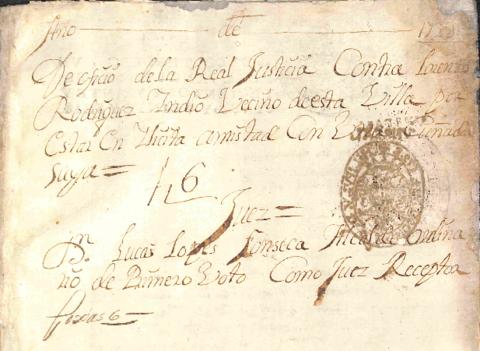 Año de 17
De oficio de la Real Justicia Contra Lorenzo
Rodriguez Indio Vecino de esta Villa por
Estar En Ilicita amistad Con Una Cuñada
suya =
16
Juez =
Dn. Lucas Lopes Fonseca Alcalde Ordina
rio de Primero Voto Como Juez Receptor
foxas 6 =